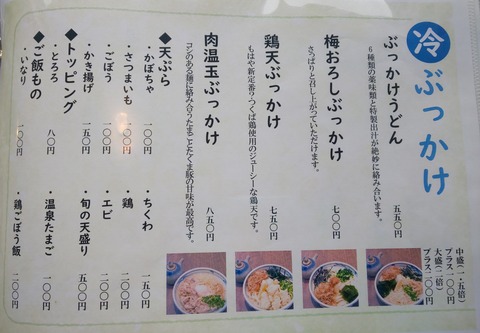 冷ぶっかけ
ぶっかけうどん
6種類の薬味類と特製出汁が絶妙に絡み合います。
五五〇円
中盛(一・五倍)
プラス一〇〇円
大盛(二倍)
プラス二〇〇円
梅おろしぶっかけ
さっぱりと召し上がっていただけます。
七〇〇円
鶏天ぶっかけ
もはや新定番?つくば鶏使用のジューシーな鶏天です。
七五〇円
肉温玉ぶっかけ
コシのある麺に絡み合うたまごとたくま豚の甘味が最高です。
八五〇円
◆天ぷら
・かぼちゃ 一〇〇円
・さつまいも 一〇〇円
・ごぼう 一〇〇円
・かき揚げ 一五〇円
・ちくわ 一五〇円
・鶏 二〇〇円
・エビ 二〇〇円
・旬の天盛り 五〇〇円
◆トッピング
・とろろ 八〇円
・温泉たまご 一〇〇円
◆ご飯もの
・いなり 一〇〇円
・鶏ごぼう飯 二〇〇円